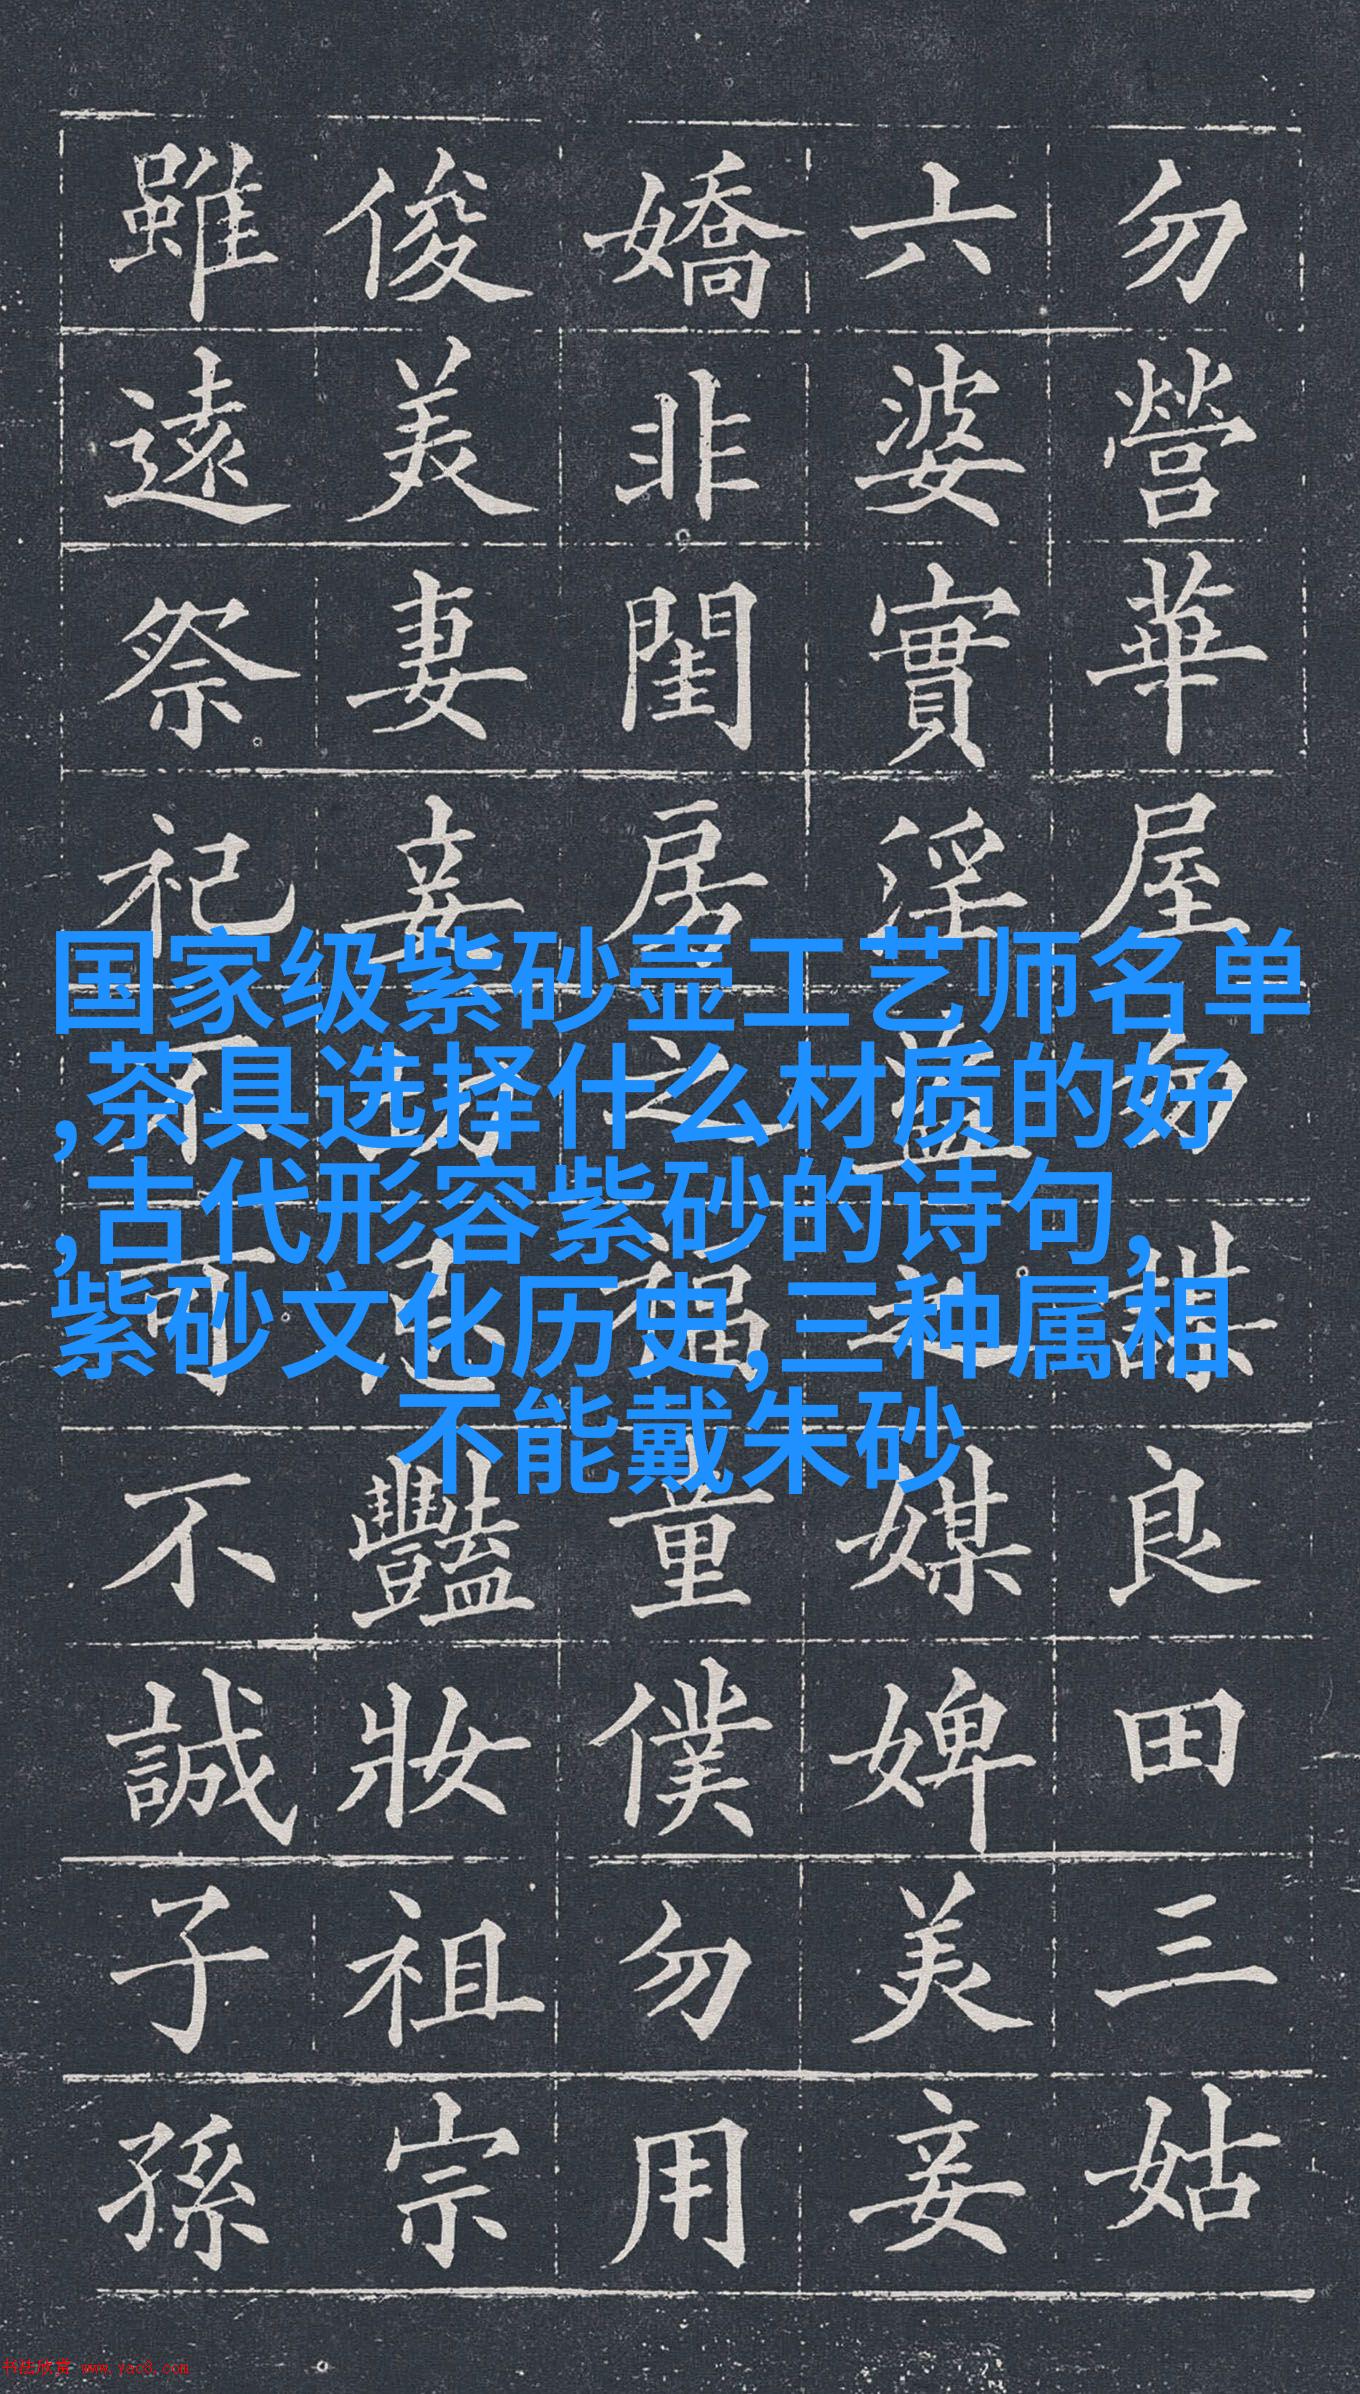 勿營華屋勿謀良田三姑
六婆實淫盜之媒婢美妾
嬌非閨房之福童僕勿用
俊美妻妾切忌豔妝祖宗
雖遠祭祀不可不誠子孫
国家级紫砂壶工艺师名单
,茶具选择什么材质的好
,古代形容紫砂的诗句,
紫砂文化历史,三种属相
不能戴朱砂
书法欣赏 www.yac8.com